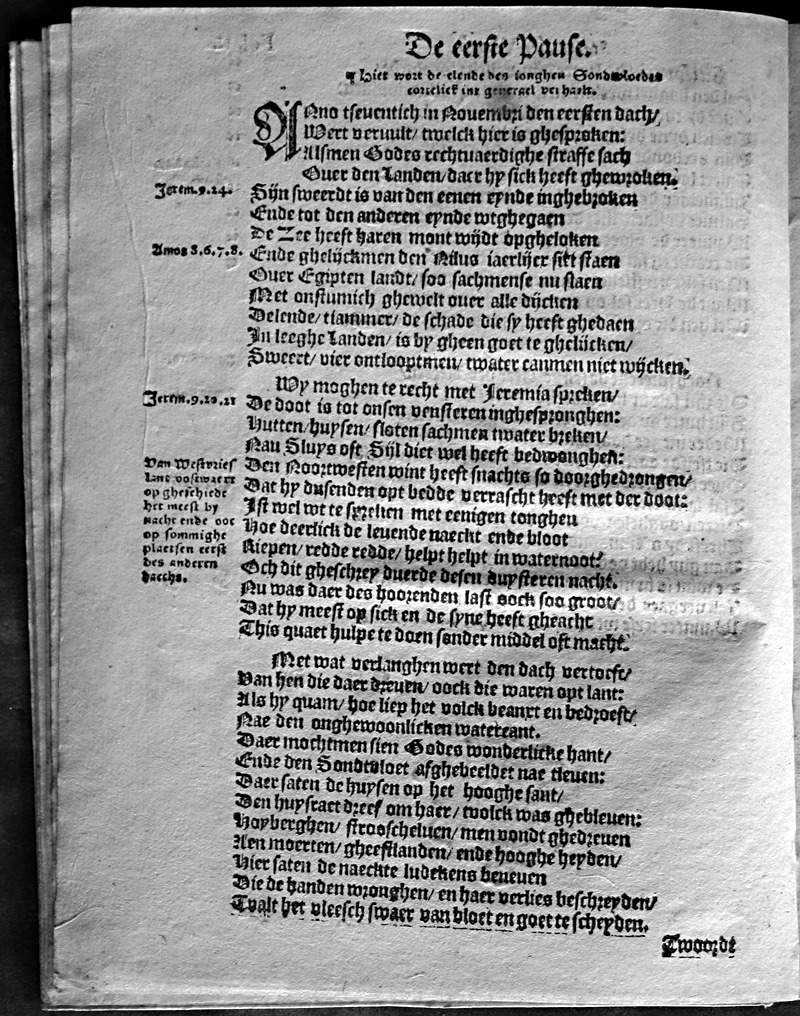 De eerste Pause.
¶ Hier wort de elende des ionghen Sondtvloedes
cortelick int generael verhaelt.
ANno tseventich in Novembri den eersten dach/
Wert vervult/ twelck hier is ghesproken:
Alsmen Godes rechtvaerdighe straffe sach
Over den Landen/ daer hy sick heeft ghewroken.
Jerem.9.24.
Sijn sweerdt is van den eenen eynde inghebroken
Ende tot den anderen eynde wtghegaen
De Zee heeft haren mont wijdt opgheloken
Amos 8.6.7.8.
Ende ghelijckmen den Nilus iaerlijcx siet staen
Over Egipten landt/ soo sachmense nu staen
Met onstumich ghewelt over alle dijcken
Delende/ tiammer/ de schade die sy heeft ghedaen
In leeghe Landen/ is by gheen goet te ghelijcken/
Sweert/ vier ontlooptmen/ twater canmen niet wijcken.
Wy moghen te recht met Jeremia spreken/
Jerem.9.20.21
De doot is tot onsen vensteren inghespronghen:
Hutten/ huysen/ sloten sachmen twater breken/
Nau Sluys oft Sijl diet wel heeft bedwonghen:
Van Westvries
lant oostwaert
op gheschiede
het meest by
nacht ende ooc
op sommighe
plaetsen eerst
des anderen
daechs.
Den Noortwesten wint heeft snachts so doorghedrongen/
Dat hy dusenden opt bedde verrascht heeft met der doot:
Ist wel wt te spreken met eenigen tonghen
Hoe deerlick de levende naeckt ende bloot
Riepen/ redde redde/ helpt helpt in waternoot?
Och dit gheschrey duerde desen duysteren nacht.
Nu was daer des hoorenden last oock soo groot/
Dat hy meest op sick en de syne heeft gheacht
This quaet hulpe te doen sonder middel oft macht.
Met wat verlanghen wert den dach vertoeft/
Van hen die daer dreven/ oock die waren opt lant:
Als hy quam/ hoe liep het volck beanxt en bedroeft/
Nae den onghewoonlicken watercant.
Daer mochtmen sien Godes wonderlicke hant/
Ende den Sondtvloet afghebeeldet nae tleven:
Daer saten de huysen op het hooghe sant/
Den huysraet dreef om haer/ tvolck was ghebleven:
Hoyberghen/ strooschelven/ men vondt ghedreven
Aen moerten/ gheestlanden/ ende hooghe heyden/
Hier saten de naeckte ludekens beneven
Die de handen wronghen/ en haer verlies beschreyden/
Tvalt het vleesch swaer van bloet en goet te scheyden.
Twoordt